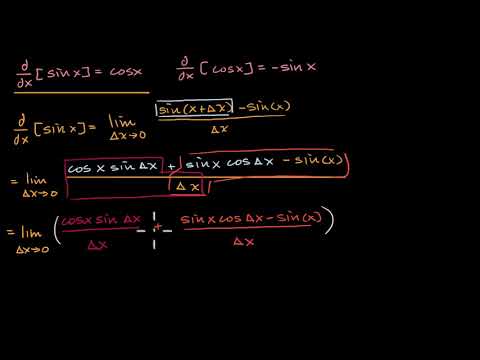 d/dx [sin x] = cos x    d/dx [cos x] = -sin x
d/dx [sin x] = lim Δx→0 (sin(x+Δx) - sin(x))/Δx
= lim Δx→0 (cos x sin Δx + sin x cos Δx - sin(x))/Δx
= lim Δx→0 (cos x sin Δx/Δx + sin x cos Δx - sin(x)/Δx)